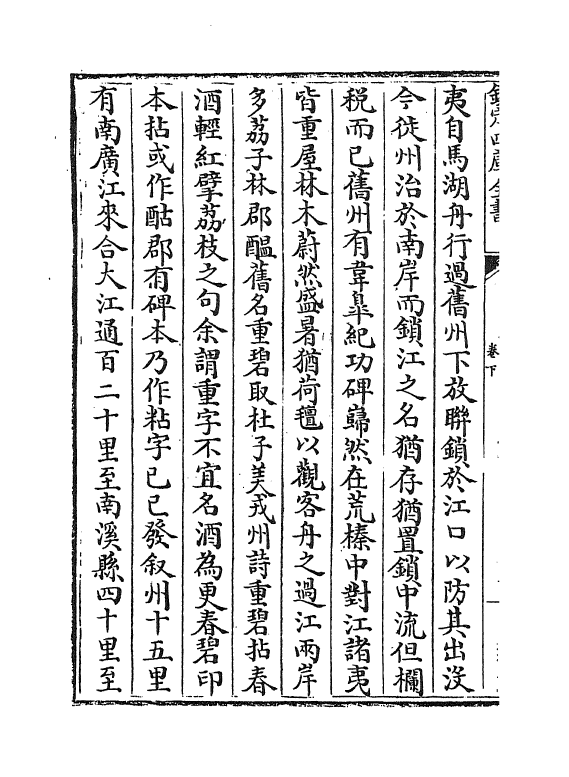 欽定四庫全書
卷下
夷自馬湖舟行過舊州下放聯鎖於江口以防其出没
今徙州治於南岸而鎖江之名猶存猶置鎖中流但欄
税而已舊州有韋臯紀功碑巋然在荒榛中對江諸夷
皆重屋林木蔚然盛暑猶荷氊以觀客舟之過江兩岸
多荔子林郡醖舊名重碧取杜子美戎州詩重碧拈春
酒輕紅擘荔枝之句余謂重字不宜名酒為更春碧印
本拈或作酤郡有碑本乃作粘字己巳發叙州十五里
有南廣江來合大江通百二十里至南溪縣四十里至